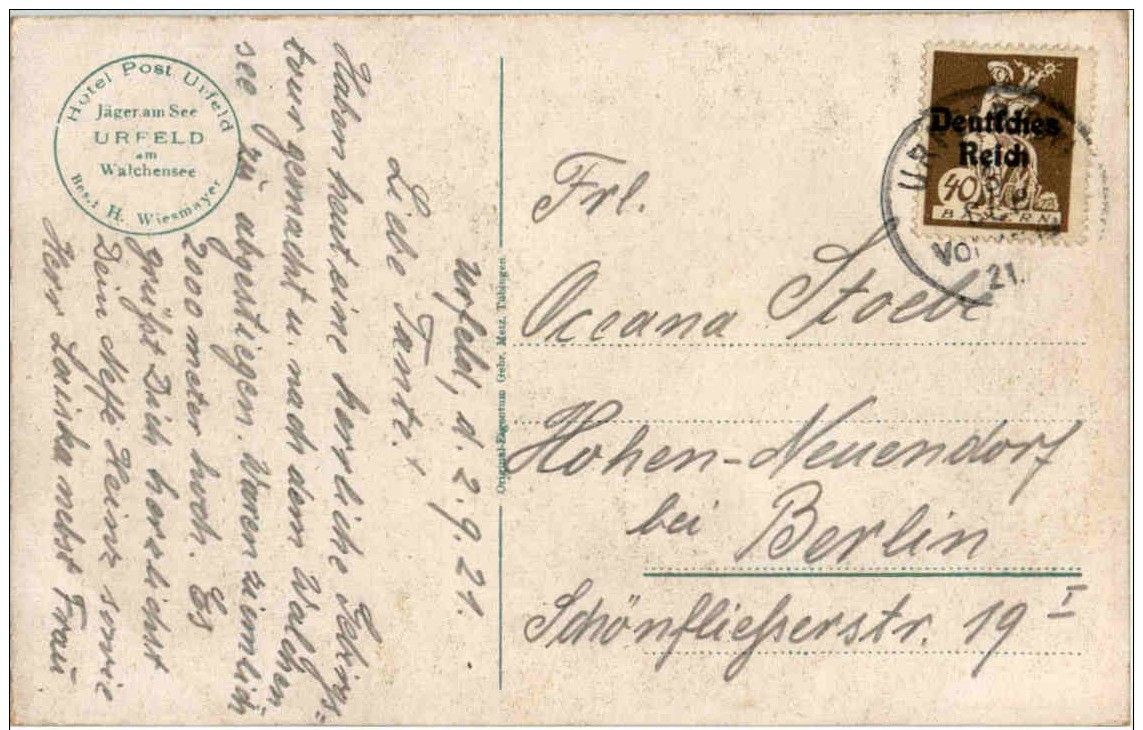 Hotel Post Urfeld
Jäger am See
URFELD
am
Walchensee
Bes.: H. Wiesmayer
Urfeld, d. 2.9.21.
Liebe Tante!
Haben heut eine herrliche Gebirgs=
tour gemacht u. nach dem Walchen-
see zu abgestiegen. Waren ziemlich
2000 meter hoch. Es
grüßt Dich herzlichst
Dein Neffe Heinz sowie
Herr Lainka nebst Frau
Original-Eigentum Gebr. Metz, Tübingen
Deutsches
Reich
40
BAYERN
VOR
21.
Frl.
Oceana Stoebe
Hohen-Neuendorf
bei Berlin
Schönfliesserstr. 19 I